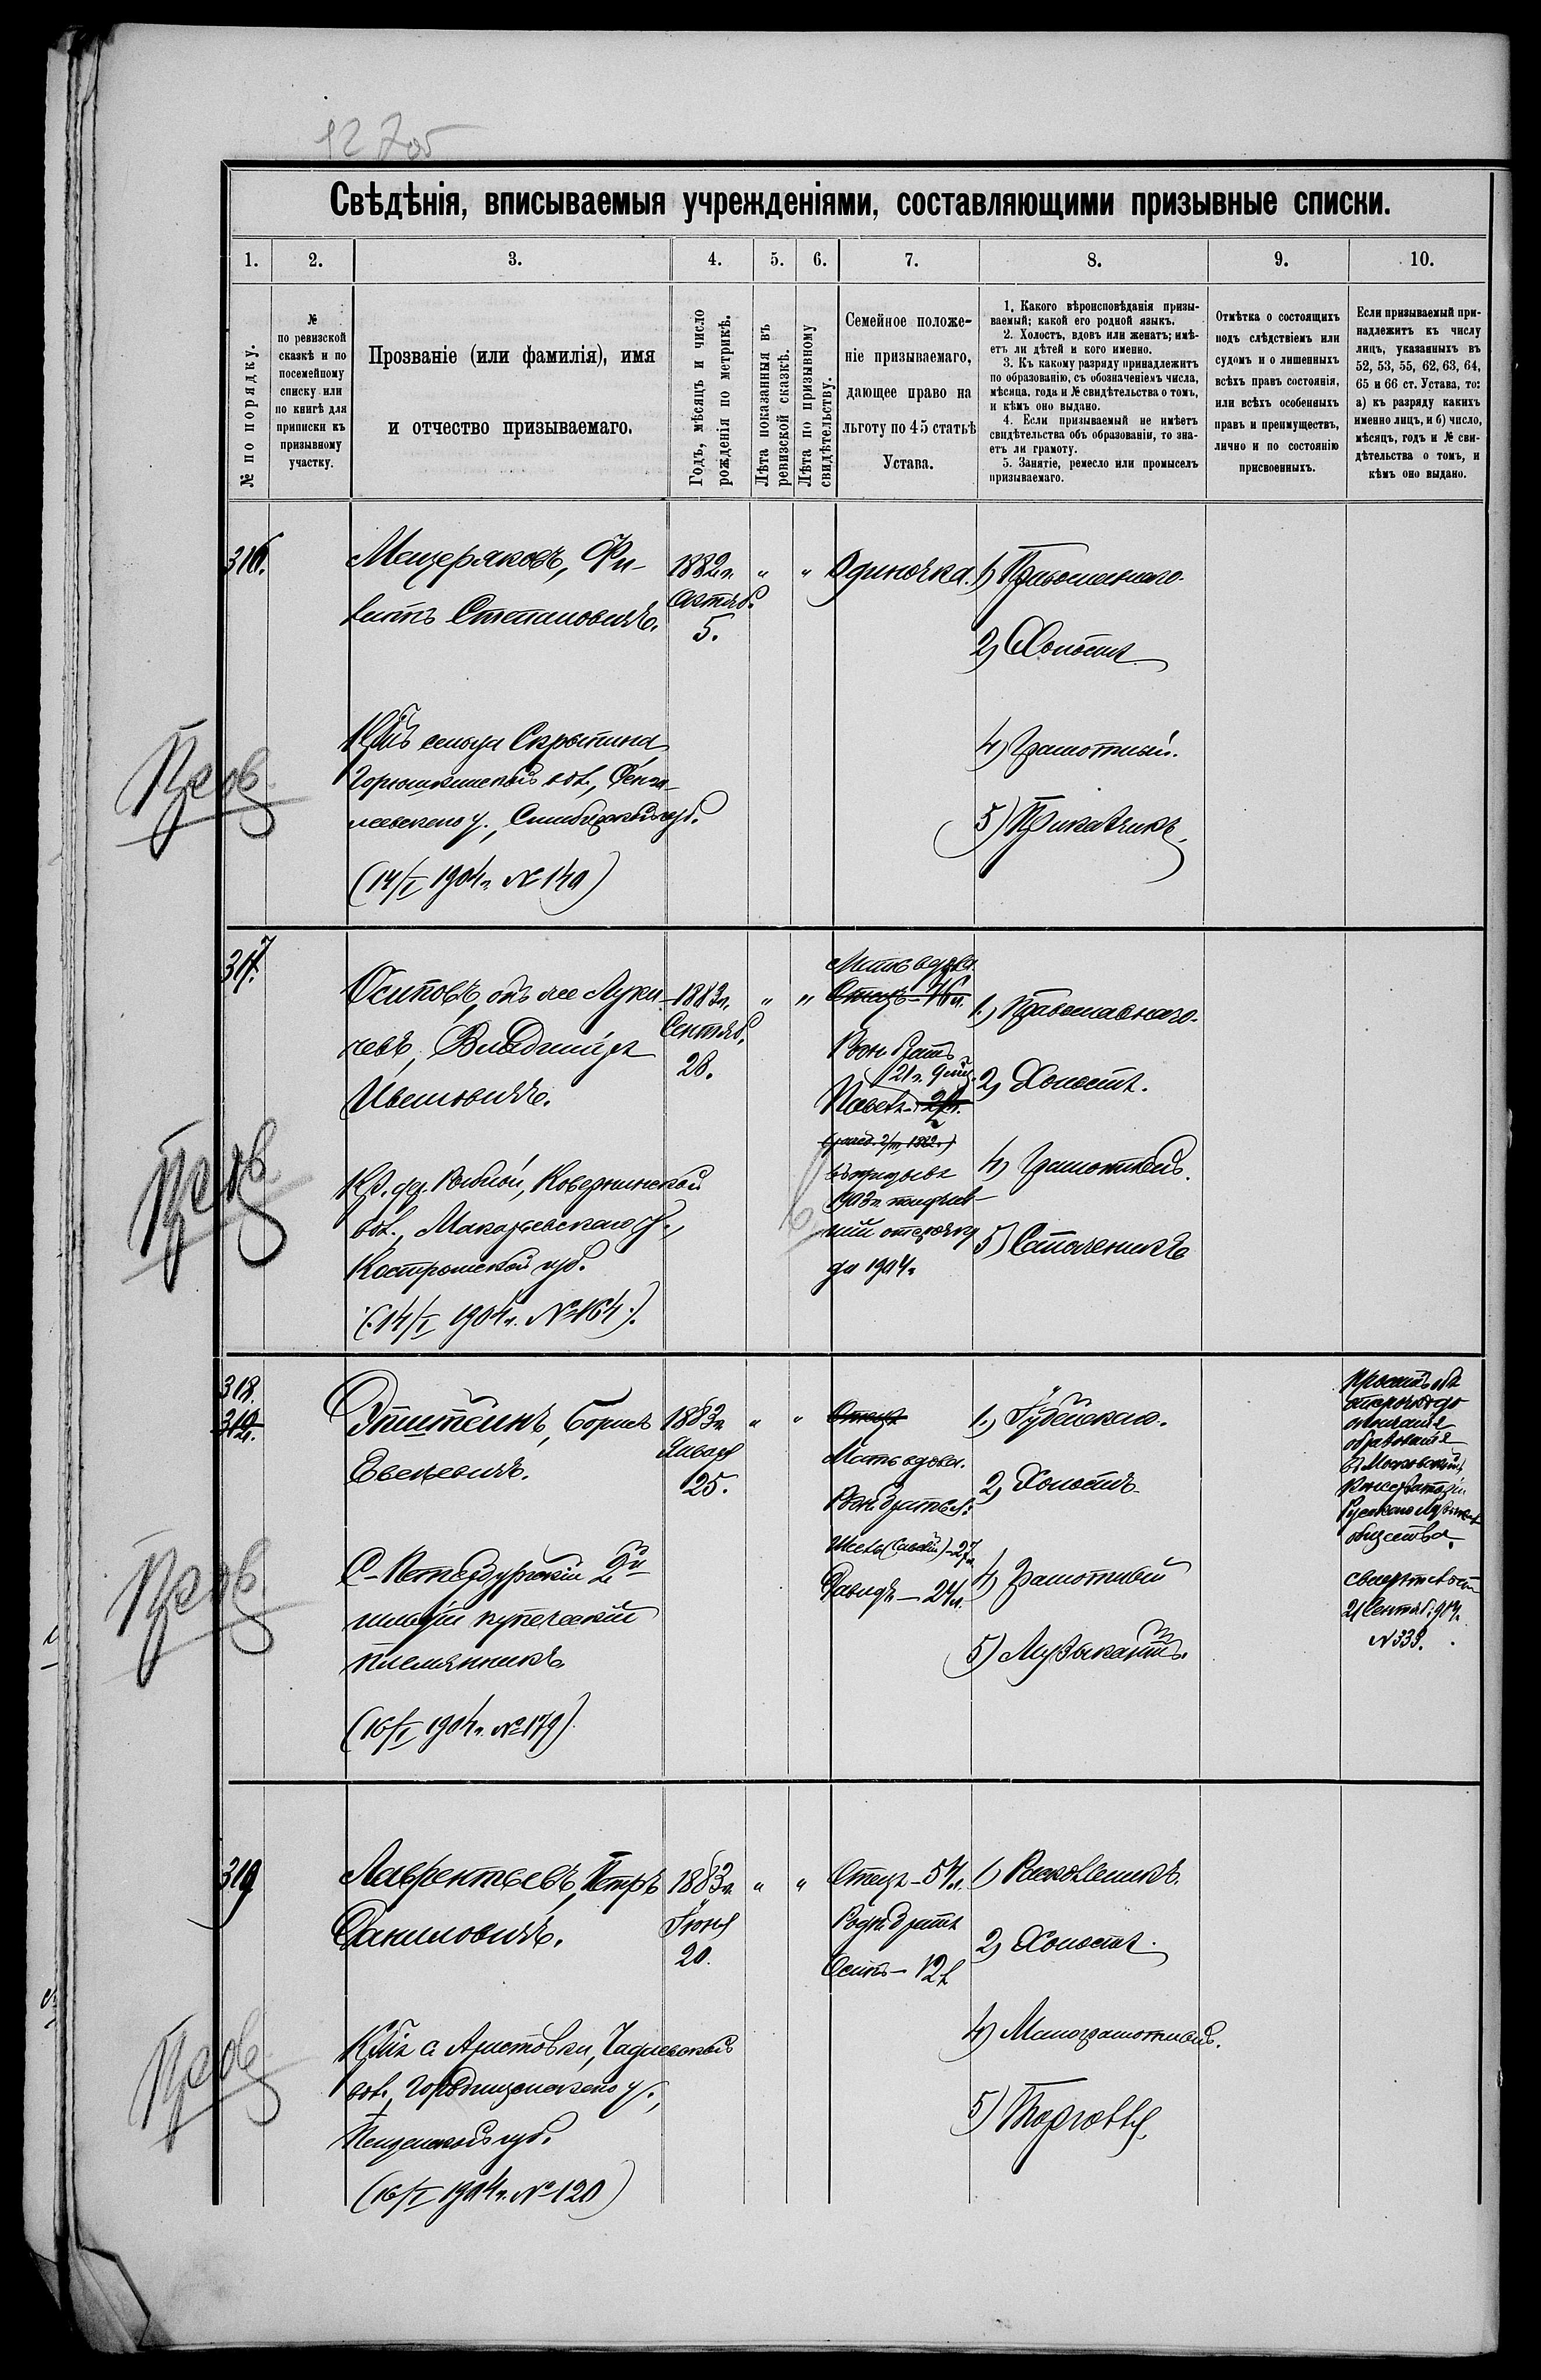 12705
Свѣдѣнія, вписываемыя учрежденіями, составляющими призывные списки.
1. 2. 3. 4. 5. 6. 7. 8. 9. 10.
№ по порядку.
№
по ревизской
сказкѣ и по
посемейному
списку или
по книгѣ для
приписки къ
призывному
участку.
Прозваніе (или фамилія), имя
и отчество призываемаго.
Годъ, мѣсяцъ и число
рожденія по метрикѣ.
Лѣта показанныя въ
ревизской сказкѣ.
Лѣта по призывному
свидѣтельству.
Семейное положе-
ніе призываемаго,
дающее право на
льготу по 45 статьѣ
Устава.
1. Какого вѣроисповѣданія призы-
ваемый; какой его родной языкъ.
2. Холостъ, вдовъ или женатъ; имѣ-
етъ ли дѣтей и кого именно.
3. Къ какому разряду принадлежитъ
по образованію, съ обозначеніемъ числа,
мѣсяца, года и № свидѣтельства о томъ,
и кѣмъ оно выдано.
4. Если призываемый не имѣетъ
свидѣтельства объ образованіи, то зна-
етъ ли грамоту.
5. Занятіе, ремесло или промыселъ
призываемаго.
Отмѣтка о состоящихъ
подъ слѣдствіемъ или
судомъ и о лишенныхъ
всѣхъ правъ состоянія,
или всѣхъ особенныхъ
правъ и преимуществъ,
лично и по состоянію
присвоенныхъ.
Если призываемый при-
надлежитъ къ числу
лицъ, указанныхъ въ
52, 53, 55, 62, 63, 64,
65 и 66 ст. Устава, то:
а) къ разряду какихъ
именно лицъ, и б) число,
мѣсяцъ, годъ и № сви-
дѣтельства о томъ, и
кѣмъ оно выдано.
316.
Мещеряковъ, Фи-
липпъ Степановичъ.
1882 г.
Октяб.
5.
" "
Одиночка.
1) Православнаго.
2) Холостъ
4) Грамотный.
5) Прикащикъ.
сельца Скрыпина
вол.,
у., Симбирской губ.
(14/I 1904 г. № 149)
317.
Осиповъ, онъ же Луки-
чевъ, Владиміръ
Ивановичъ.
1883 г.
Сентяб.
28.
" "
Мать вдова
Отецъ
Родн. братъ
21 г.
Павелъ
1882
въ призывъ
1903 г.
отсрочку
до 1904 г.
1.) Православнаго.
2) Холостъ.
4) Грамотный.
5) Сапожникъ
Кр. др. Рыбной, Ковернинской
вол., Макарьевскаго у.,
Костромской губ.
(14/I 1904 г. № 164.)
318.
Эпштейнъ, Борисъ
Евсеевичъ.
1883 г.
Январ
25.
" "
Отецъ
Мать вдова.
Родн. братья:
27
Давидъ — 24 л.
1.) Іудейскаго.
2) Холостъ.
4) Грамотный
5) Музыкантъ.
С-Петербургскій 2й
гильдіи купеческій
племянникъ
(16/I 1904 г. № 179)
Проситъ объ
отсрочкѣ до
окончанія
образованія
въ Московской
Консерваторіи
Русскаго Музык.
общества.
21 Сентяб.
№ 333.
319
Лаврентьевъ, Петръ
Даниловичъ.
1883 г.
Іюня
20.
" "
Отецъ — 54 л.
Родн. братъ
Осипъ — 12 л
1) Раскольникъ.
2) Холостъ.
4) Малограмотный.
5) Торговля
с. Аристовки,
вол., Городищенскаго у.,
Пензенской губ.
(16/I 1904 г. № 120)